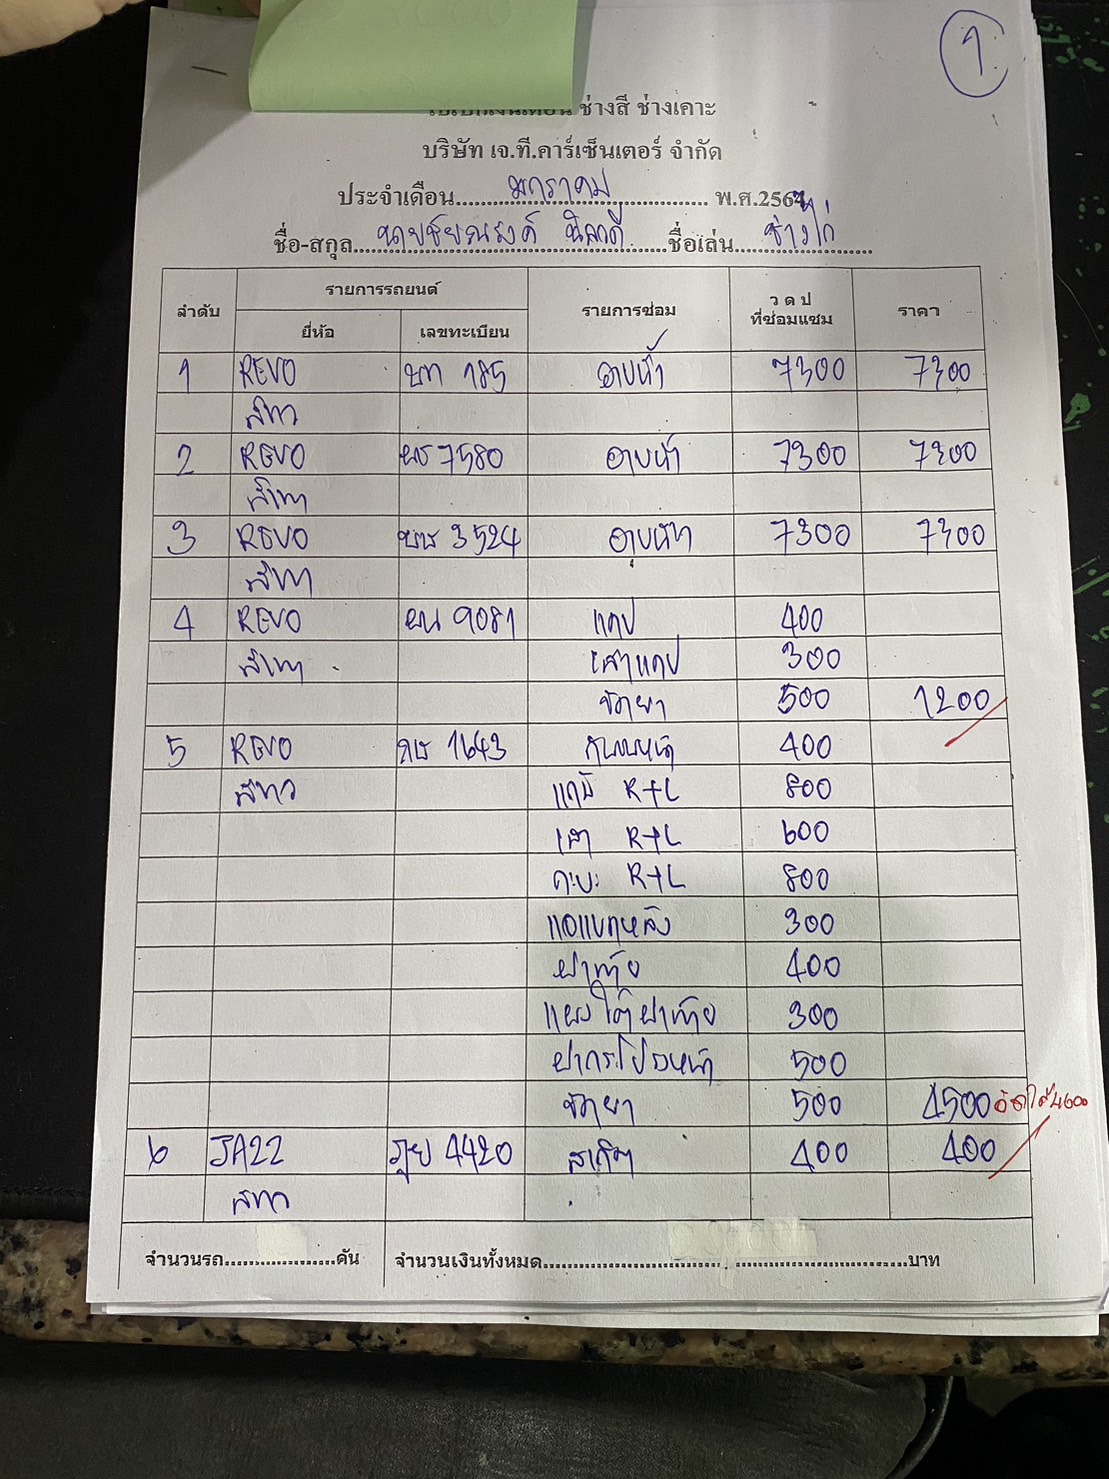 1
ช่างสี ช่างเคาะ
บริษัท เจ.ที.คาร์เซ็นเตอร์ จำกัด
ประจำเดือน มกราคม พ.ศ.2567
ชื่อ-สกุล นายชัยณรงค์ ชื่อเล่น ช่างไก่
ลำดับ รายการรถยนต์ รายการซ่อม ว ด ป ที่ซ่อมแซม ราคา
ยี่ห้อ เลขทะเบียน
1 REVO 185 7300 7300
สีขาว
2 REVO 7580 7300 7300
สีเทา
3 REVO 3524 7300 7300
สีเทา
4 REVO 9081 แคป 400
สีเทา เสาแคป 300
ขัดยา 500 1200
5 REVO 1643 กันชนหน้า 400
สีขาว แก้ม R+L 800
เสา R+L 600
กะบะ R+L 800
300
ฝาท้าย 400
แผงใต้ฝาท้าย 300
ฝากระโปรงหน้า 500
ขัดยา 500 4500 4600
6 JA22 4420 สเกิร์ต 400 400
สีขาว
จำนวนรถ คัน จำนวนเงินทั้งหมด บาท